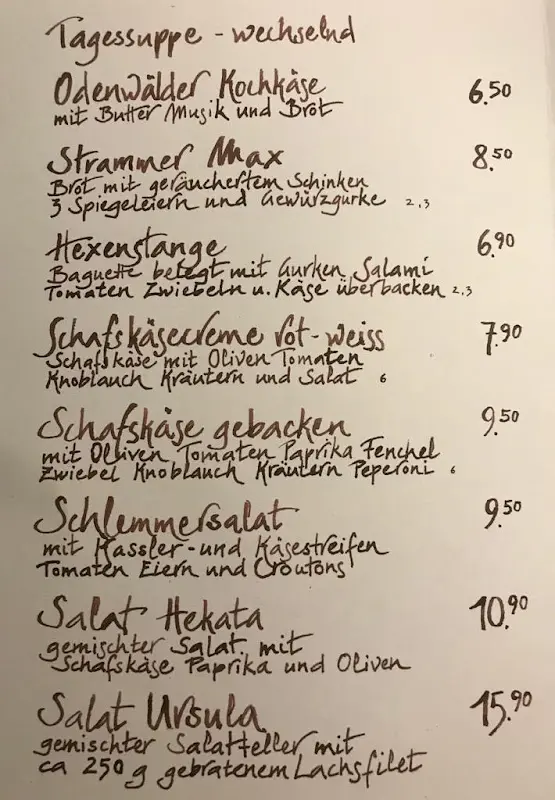 Tagessuppe - wechselnd
Odenwälder Kochkäse 6.50
mit Butter Musik und Brot
Strammer Max 8.50
Brot mit geräuchertem Schinken
3 Spiegeleiern und Gewürzgurke 2,3
Hexenstange 6.90
Baguette belegt mit Gurken Salami
Tomaten Zwiebeln u. Käse überbacken 2,3
Schafskäsecreme rot-weiss 7.90
Schafskäse mit Oliven Tomaten
Knoblauch Kräutern und Salat 6
Schafskäse gebacken 9.50
mit Olliven Tomaten Paprika Fenchel
Zwiebel Knoblauch Kräutern Peperoni 6
Schlemmersalat 9.50
mit Kassler- und Käsestreifen
Tomaten Eiern und Croutons
Salat Hekata 10.90
gemischter Salat mit
Schafskäse Paprika und Oliven
Salat Ursula 15.90
gemischter Salatteller mit
ca 250 g gebratenem Lachsfilet